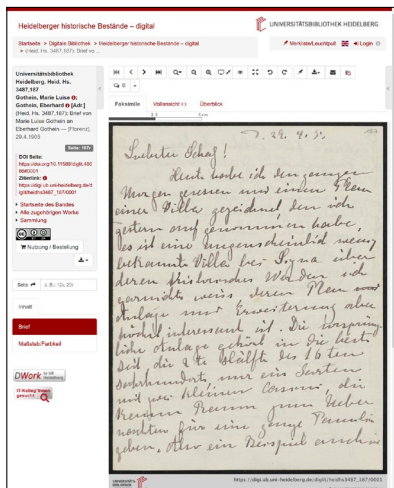 Heidelberger historische Bestände – digital
UNIVERSITÄTSBIBLIOTHEK HEIDELBERG
Startseite > Digitale Bibliothek > Heidelberger historische Bestände – digital
> (Heid. Hs. 3487,187): Brief von ...
Merkliste/Leuchtpult
Login
Universitätsbibliothek
Heidelberg, Heid. Hs.
3487,187
Gothein, Marie Luise;
Gothein, Eberhard [Adr.]
(Heid. Hs. 3487,187): Brief von
Marie Luise Gothein an
Eberhard Gothein — [Florenz],
29.4.1905
Seite: 187r
DOI Seite:
Zitierlink:
Startseite des Bandes
Alle zugehörigen Werke
Sammlung
Nutzung / Bestellung
Seite
z. B.: 12v, 20
Inhalt
Brief
Maßstab/Farbkeil
DWork
Faksimile
Vollansicht
Überblick
29. 4. 5.
187
Liebster Schatz!
Heute habe ich den ganzen
Morgen gesessen und einen Plan
einer Villa gezeichnet, den ich
gestern aufgenommen habe,
es ist eine augenscheinlich wenig
bekannte Villa bei Signa über
deren historisches Werden ich
garnichts weiss, deren Plan
Anlage und Erweiterung aber
höchst interessant ist. Die ursprüng
liche Anlage gehört in die
die 2te Hälfte des 16ten
Jahrhunderts, nur ein
mit zwei kleinen Casini, die
Raum zum Ueber
nachten für eine ganze Familie
geben. Also ein Beispiel auch
UNIVERSITÄTS-
BIBLIOTHEK
https://digi.ub.uni-heidelberg.de/diglit/heidhs3487_187/0001